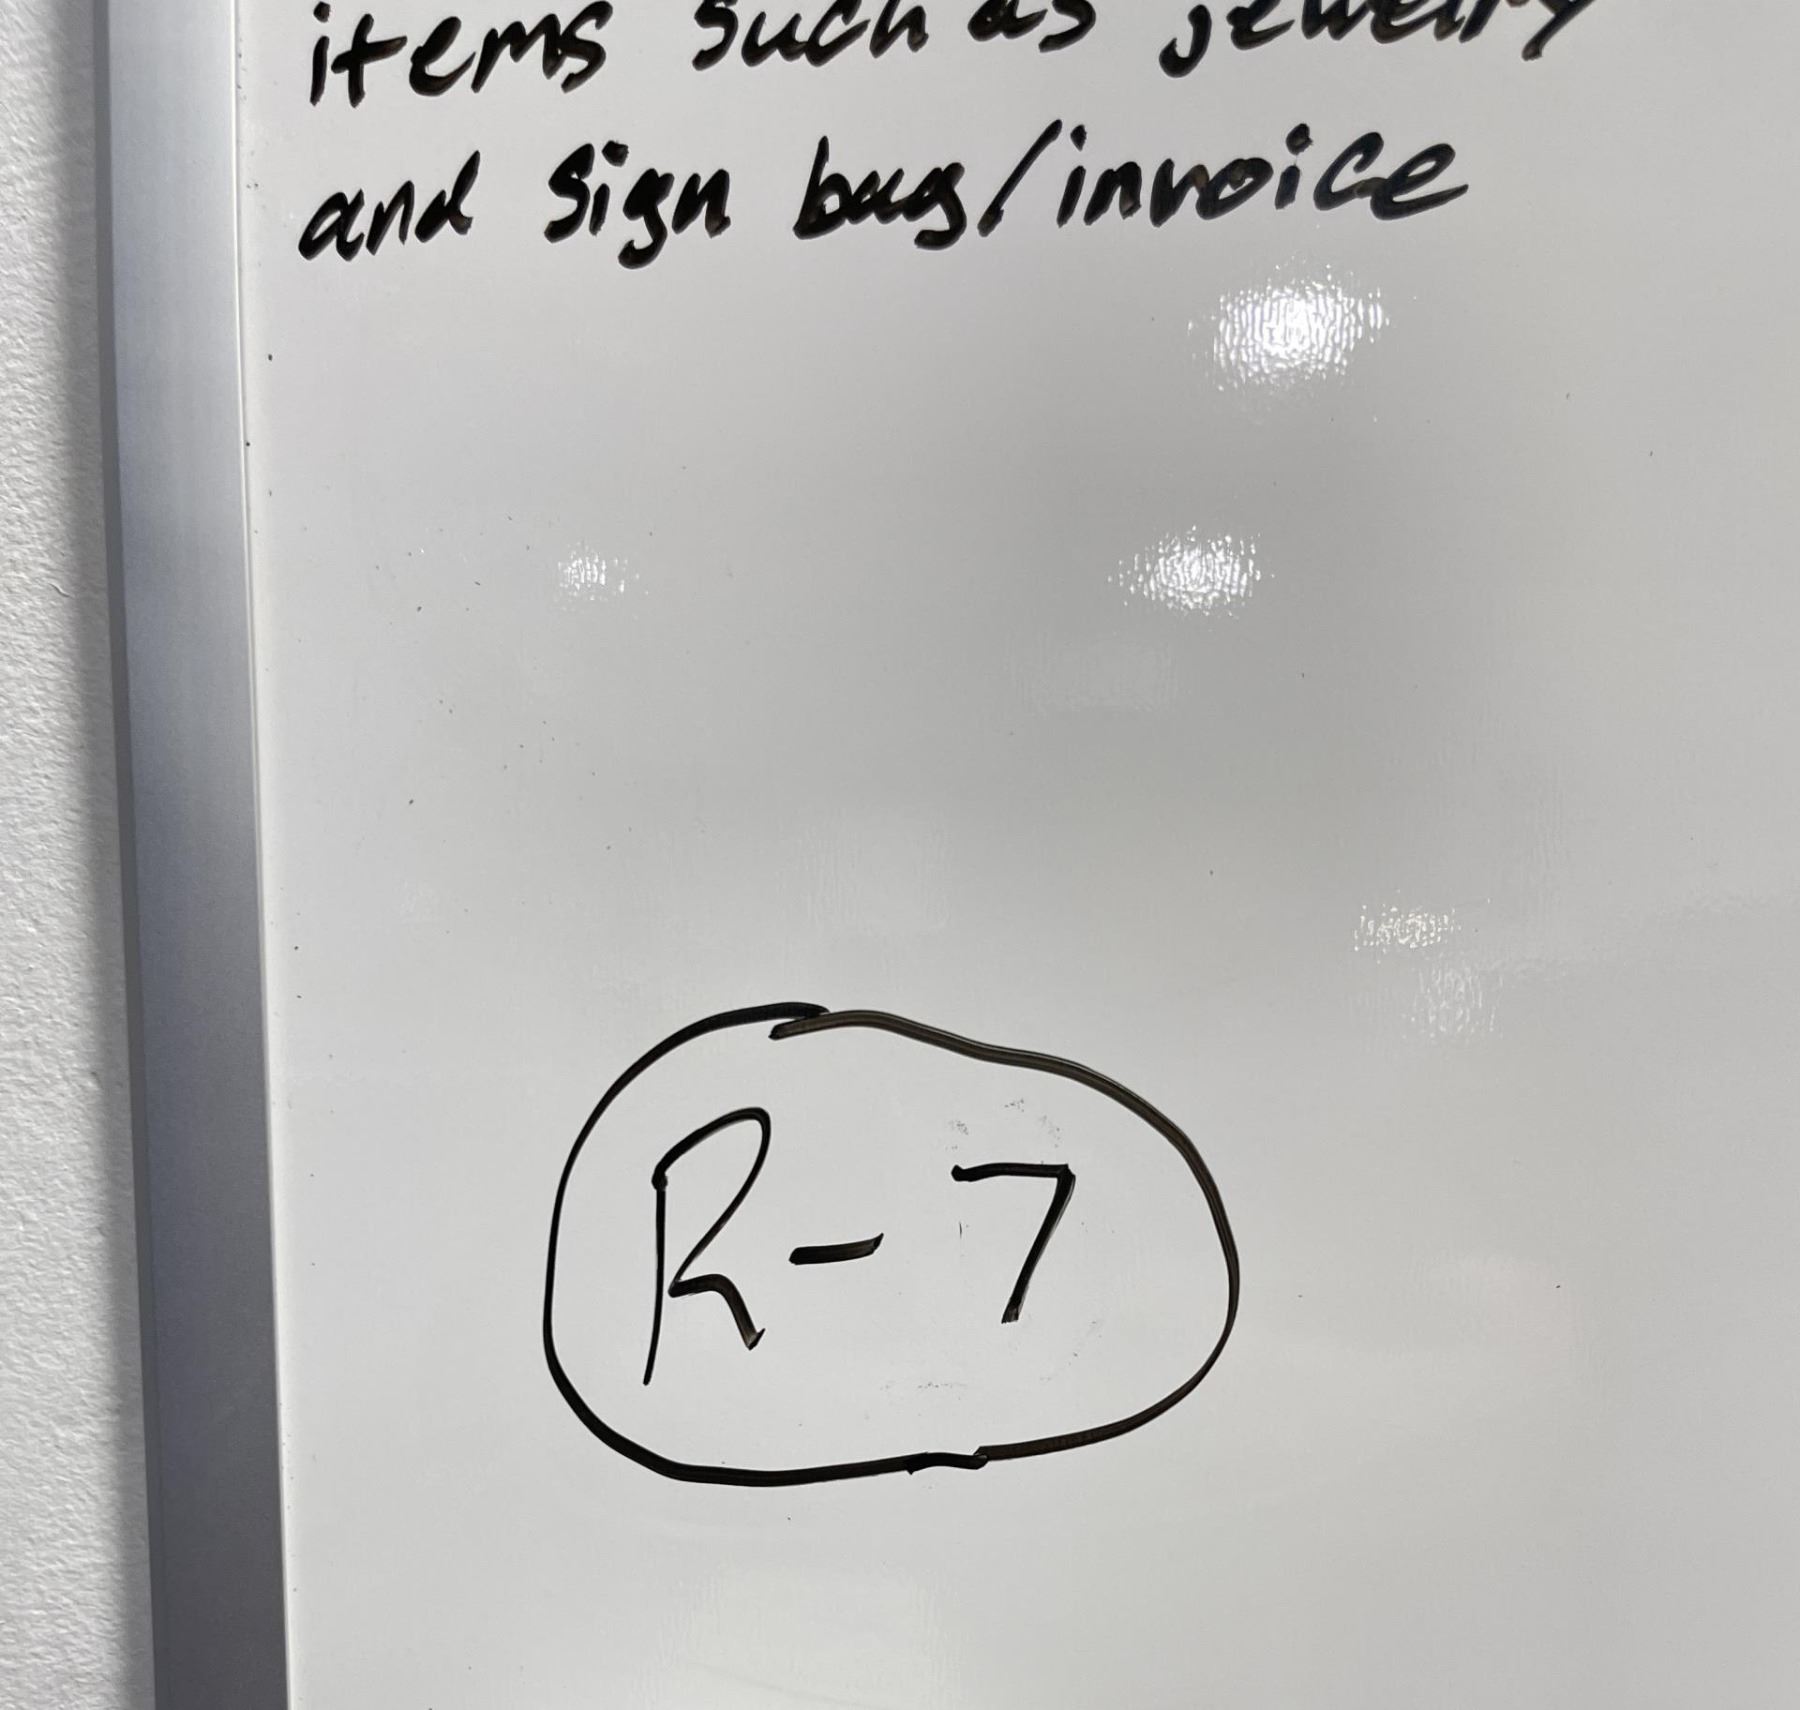 items such as jewelry
and sign bag/invoice
R-7